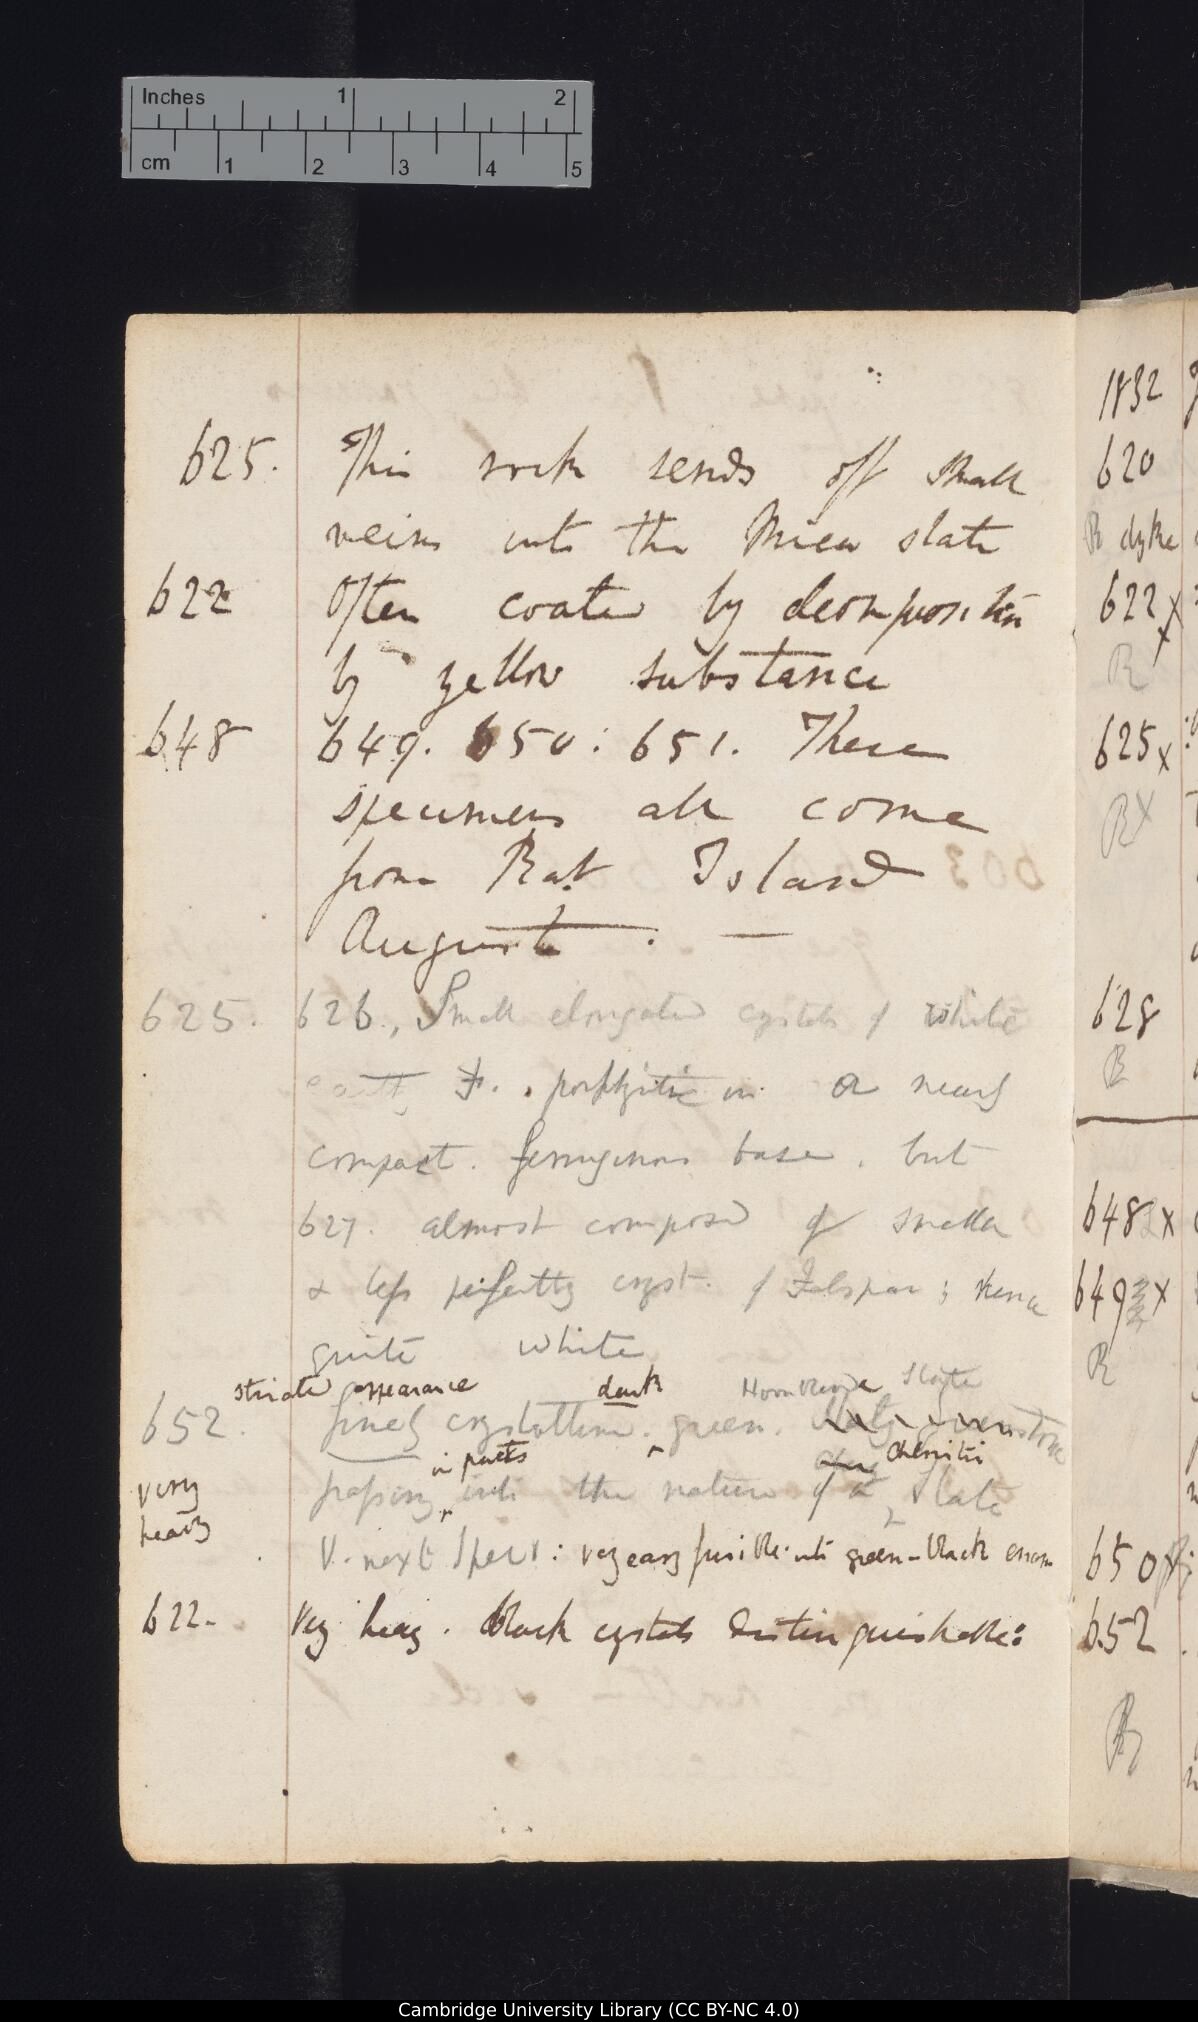 Inches 1 2
cm 1 2 3 4 5
625. This rock sends off small
veins into the Mica slate
622 Often coated by decomposition
by yellow substance
648 649. 650: 651. These
specimens all come
from Rat Island
August. —
625. 626., Small elongated crystals of white
earthy F. porphyritic in a nearly
compact. ferruginous base. but
627. almost composed of smaller
& less perfectly cryst. of Felspar; hence
quite white
striated appearance dark Hornblende Slate
652. finely crystalline. green. Slaty greenstone
in parts Chloritic
very passing into the nature of a Slate
heavy
V. next Spec: very easy fusible into green-black enam
622- Very heavy. black crystals distinguishable:
1832
620
R dyke
622 x
x
R
625 x
R x
628
R
648 x
649 x
R
650 x
652
R
Cambridge University Library (CC BY-NC 4.0)